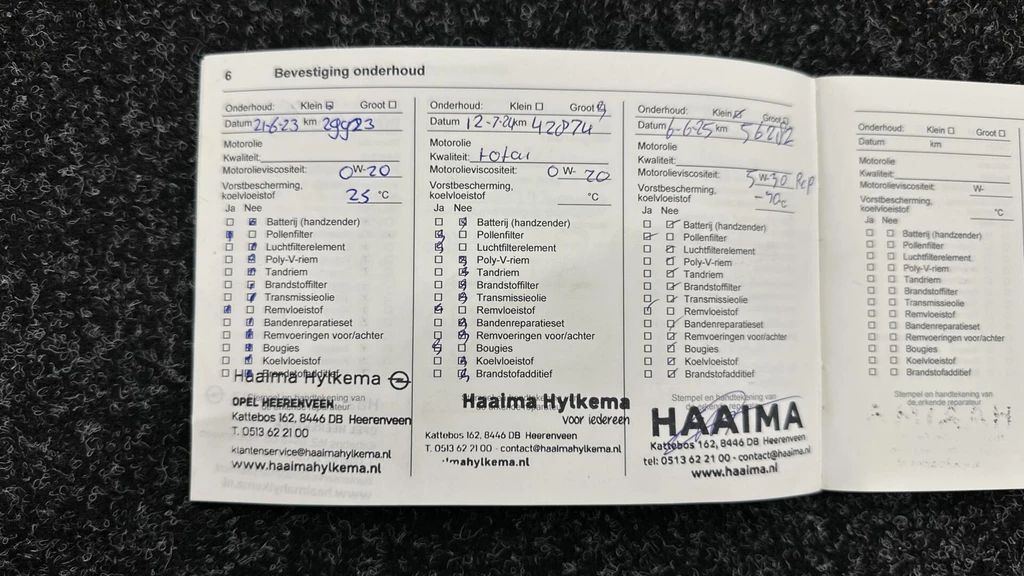 6 Bevestiging onderhoud
Onderhoud: Klein Groot
Datum 21-6-23 km 29923
Motorolie
Kwaliteit:
Motorolieviscositeit: 0W-20
Vorstbescherming,
koelvloeistof 25 °C
Ja Nee
Batterij (handzender)
Pollenfilter
Luchtfilterelement
Poly-V-riem
Tandriem
Brandstoffilter
Transmissieolie
Remvloeistof
Bandenreparatieset
Remvoeringen voor/achter
Bougies
Koelvloeistof
Brandstofadditief
Haaima Hylkema
Stempel en handtekening van
de erkende reparateur
OPEL HEERENVEEN
Kattebos 162, 8446 DB Heerenveen
T. 0513 62 21 00
klantenservice@haaimahylkema.nl
www.haaimahylkema.nl
Onderhoud: Klein Groot
Datum 12-7-24 km 42874
Motorolie
Kwaliteit: total
Motorolieviscositeit: 0W-20
Vorstbescherming,
koelvloeistof °C
Ja Nee
Batterij (handzender)
Pollenfilter
Luchtfilterelement
Poly-V-riem
Tandriem
Brandstoffilter
Transmissieolie
Remvloeistof
Bandenreparatieset
Remvoeringen voor/achter
Bougies
Koelvloeistof
Brandstofadditief
Haaima Hylkema
voor iedereen
Kattebos 162, 8446 DB Heerenveen
T. 0513 62 21 00 - contact@haaimahylkema.nl
mahylkema.nl
Onderhoud: Klein Groot
Datum 6-6-25 km
Motorolie
Kwaliteit:
Motorolieviscositeit: 5W-30 Rep
Vorstbescherming,
koelvloeistof
Ja Nee
Batterij (handzender)
Pollenfilter
Luchtfilterelement
Poly-V-riem
Tandriem
Brandstoffilter
Transmissieolie
Remvloeistof
Bandenreparatieset
Remvoeringen voor/achter
Bougies
Koelvloeistof
Brandstofadditief
Stempel en handtekening van
HAAIMA
Kattebos 162, 8446 DB Heerenveen
tel: 0513 62 21 00 - contact@haaima.nl
www.haaima.nl
Onderhoud: Klein Groot
Datum km
Motorolie
Kwaliteit:
Motorolieviscositeit: W-
Vorstbescherming,
koelvloeistof °C
Ja Nee
Batterij (handzender)
Pollenfilter
Luchtfilterelement
Poly-V-riem
Tandriem
Brandstoffilter
Transmissieolie
Remvloeistof
Bandenreparatieset
Remvoeringen voor/achter
Bougies
Koelvloeistof
Brandstofadditief
Stempel en handtekening van
de erkende reparateur